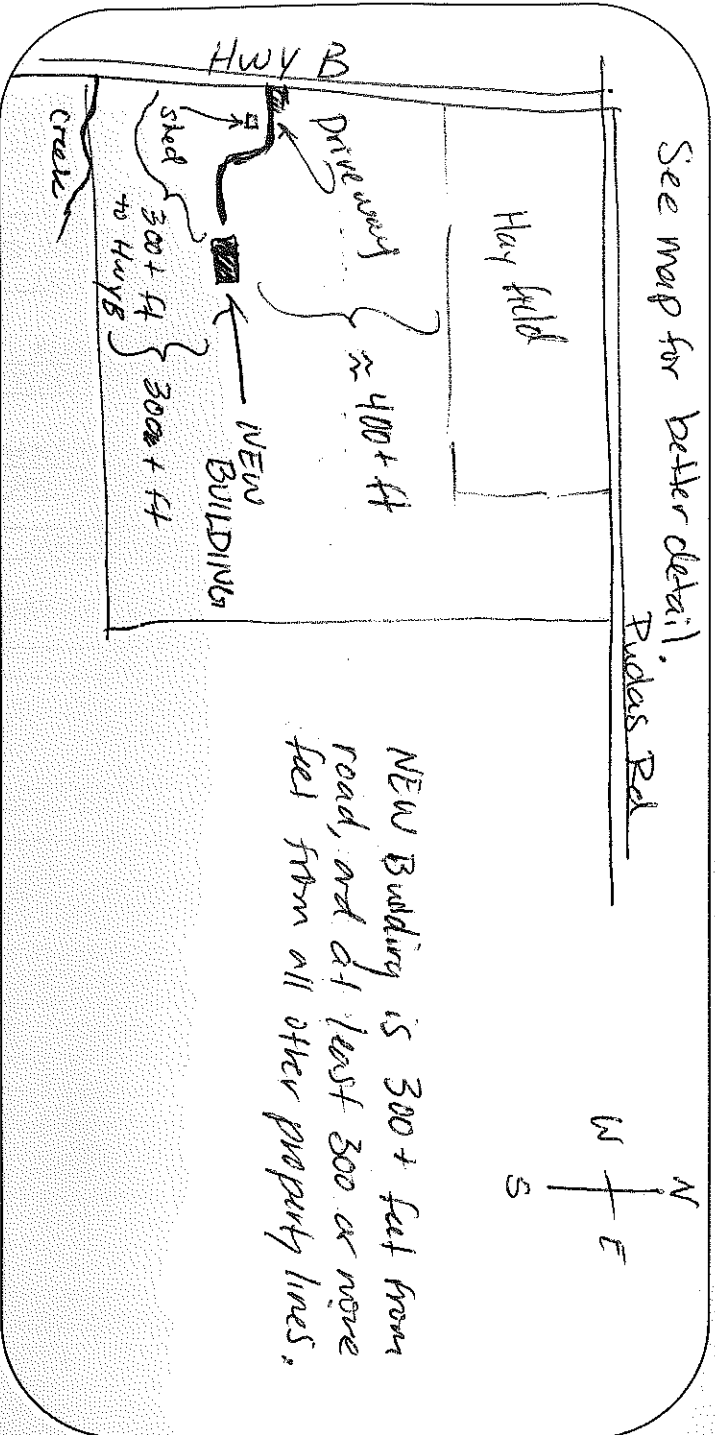 See map for better detail.
Pudas Rd
N
W E
S
HWY B
Hay field
Driveway
≈ 400+ ft
NEW
BUILDING
shed
300+ ft
to Hwy B
300+ ft
creek
NEW Building is 300+ feet from
road, and at least 300 or more
feet from all other property lines.